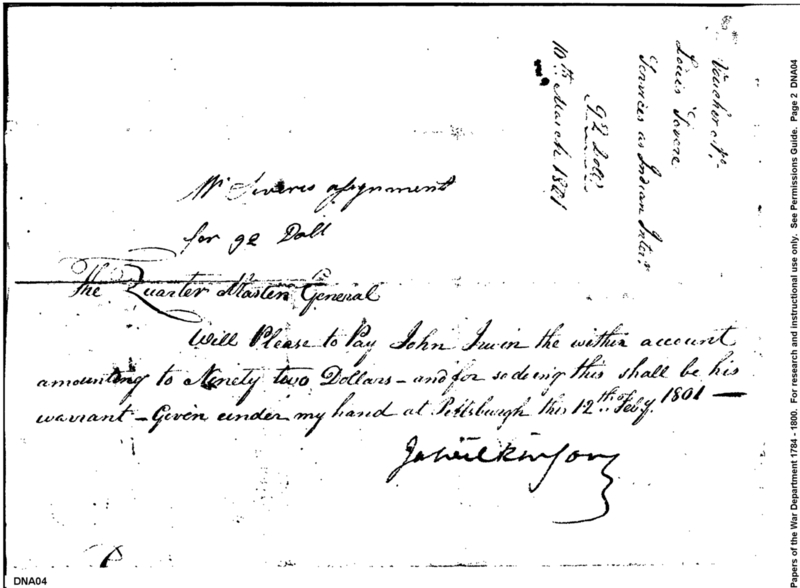 Voucher No.
Louis
Services as Indian Inter.
92 Dolls
10th March 1801
Mr assignment
for 92 Doll
The Quarter Master General
Will Please to Pay John Irwin the within account
amounting to Ninety two Dollars - and for so doing this shall be his
warrant - Given under my hand at Pittsburgh this 12th of Feby. 1801 -
Ja Wilkinson
DNA04
Papers of the War Department 1784 - 1800. For research and instructional use only. See Permissions Guide. Page 2 DNA04